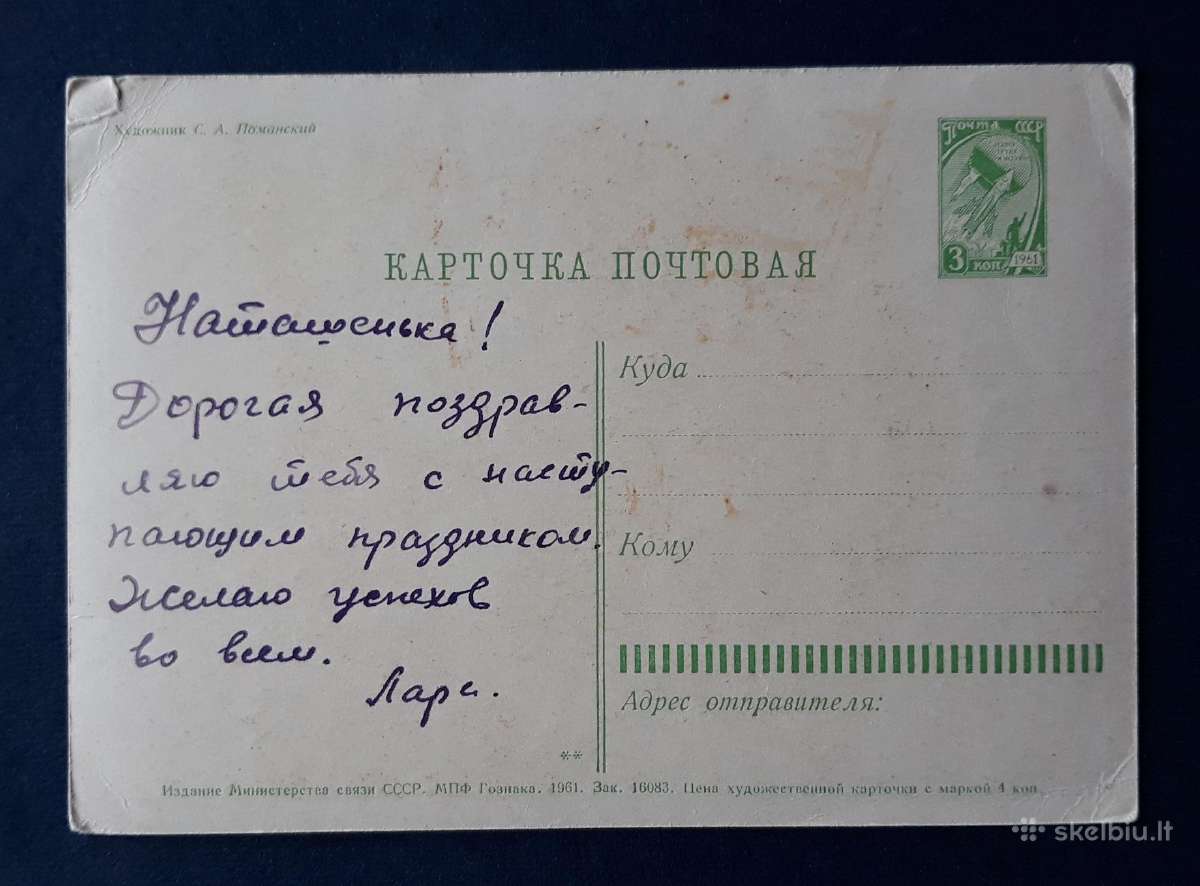 Художник С. А. Поманский
Почта СССР
3 коп
1961
КАРТОЧКА ПОЧТОВАЯ
Наташенька!
Дорогая поздрав-
ляю тебя с насту-
пающим праздником.
Желаю успехов
во всем.
Лара.
Куда
Кому
Адрес отправителя:
**
Издание Министерства связи СССР. МПФ Гознака. 1961. Зак. 16083. Цена художественной карточки с маркой 4 коп
skelbiu.lt